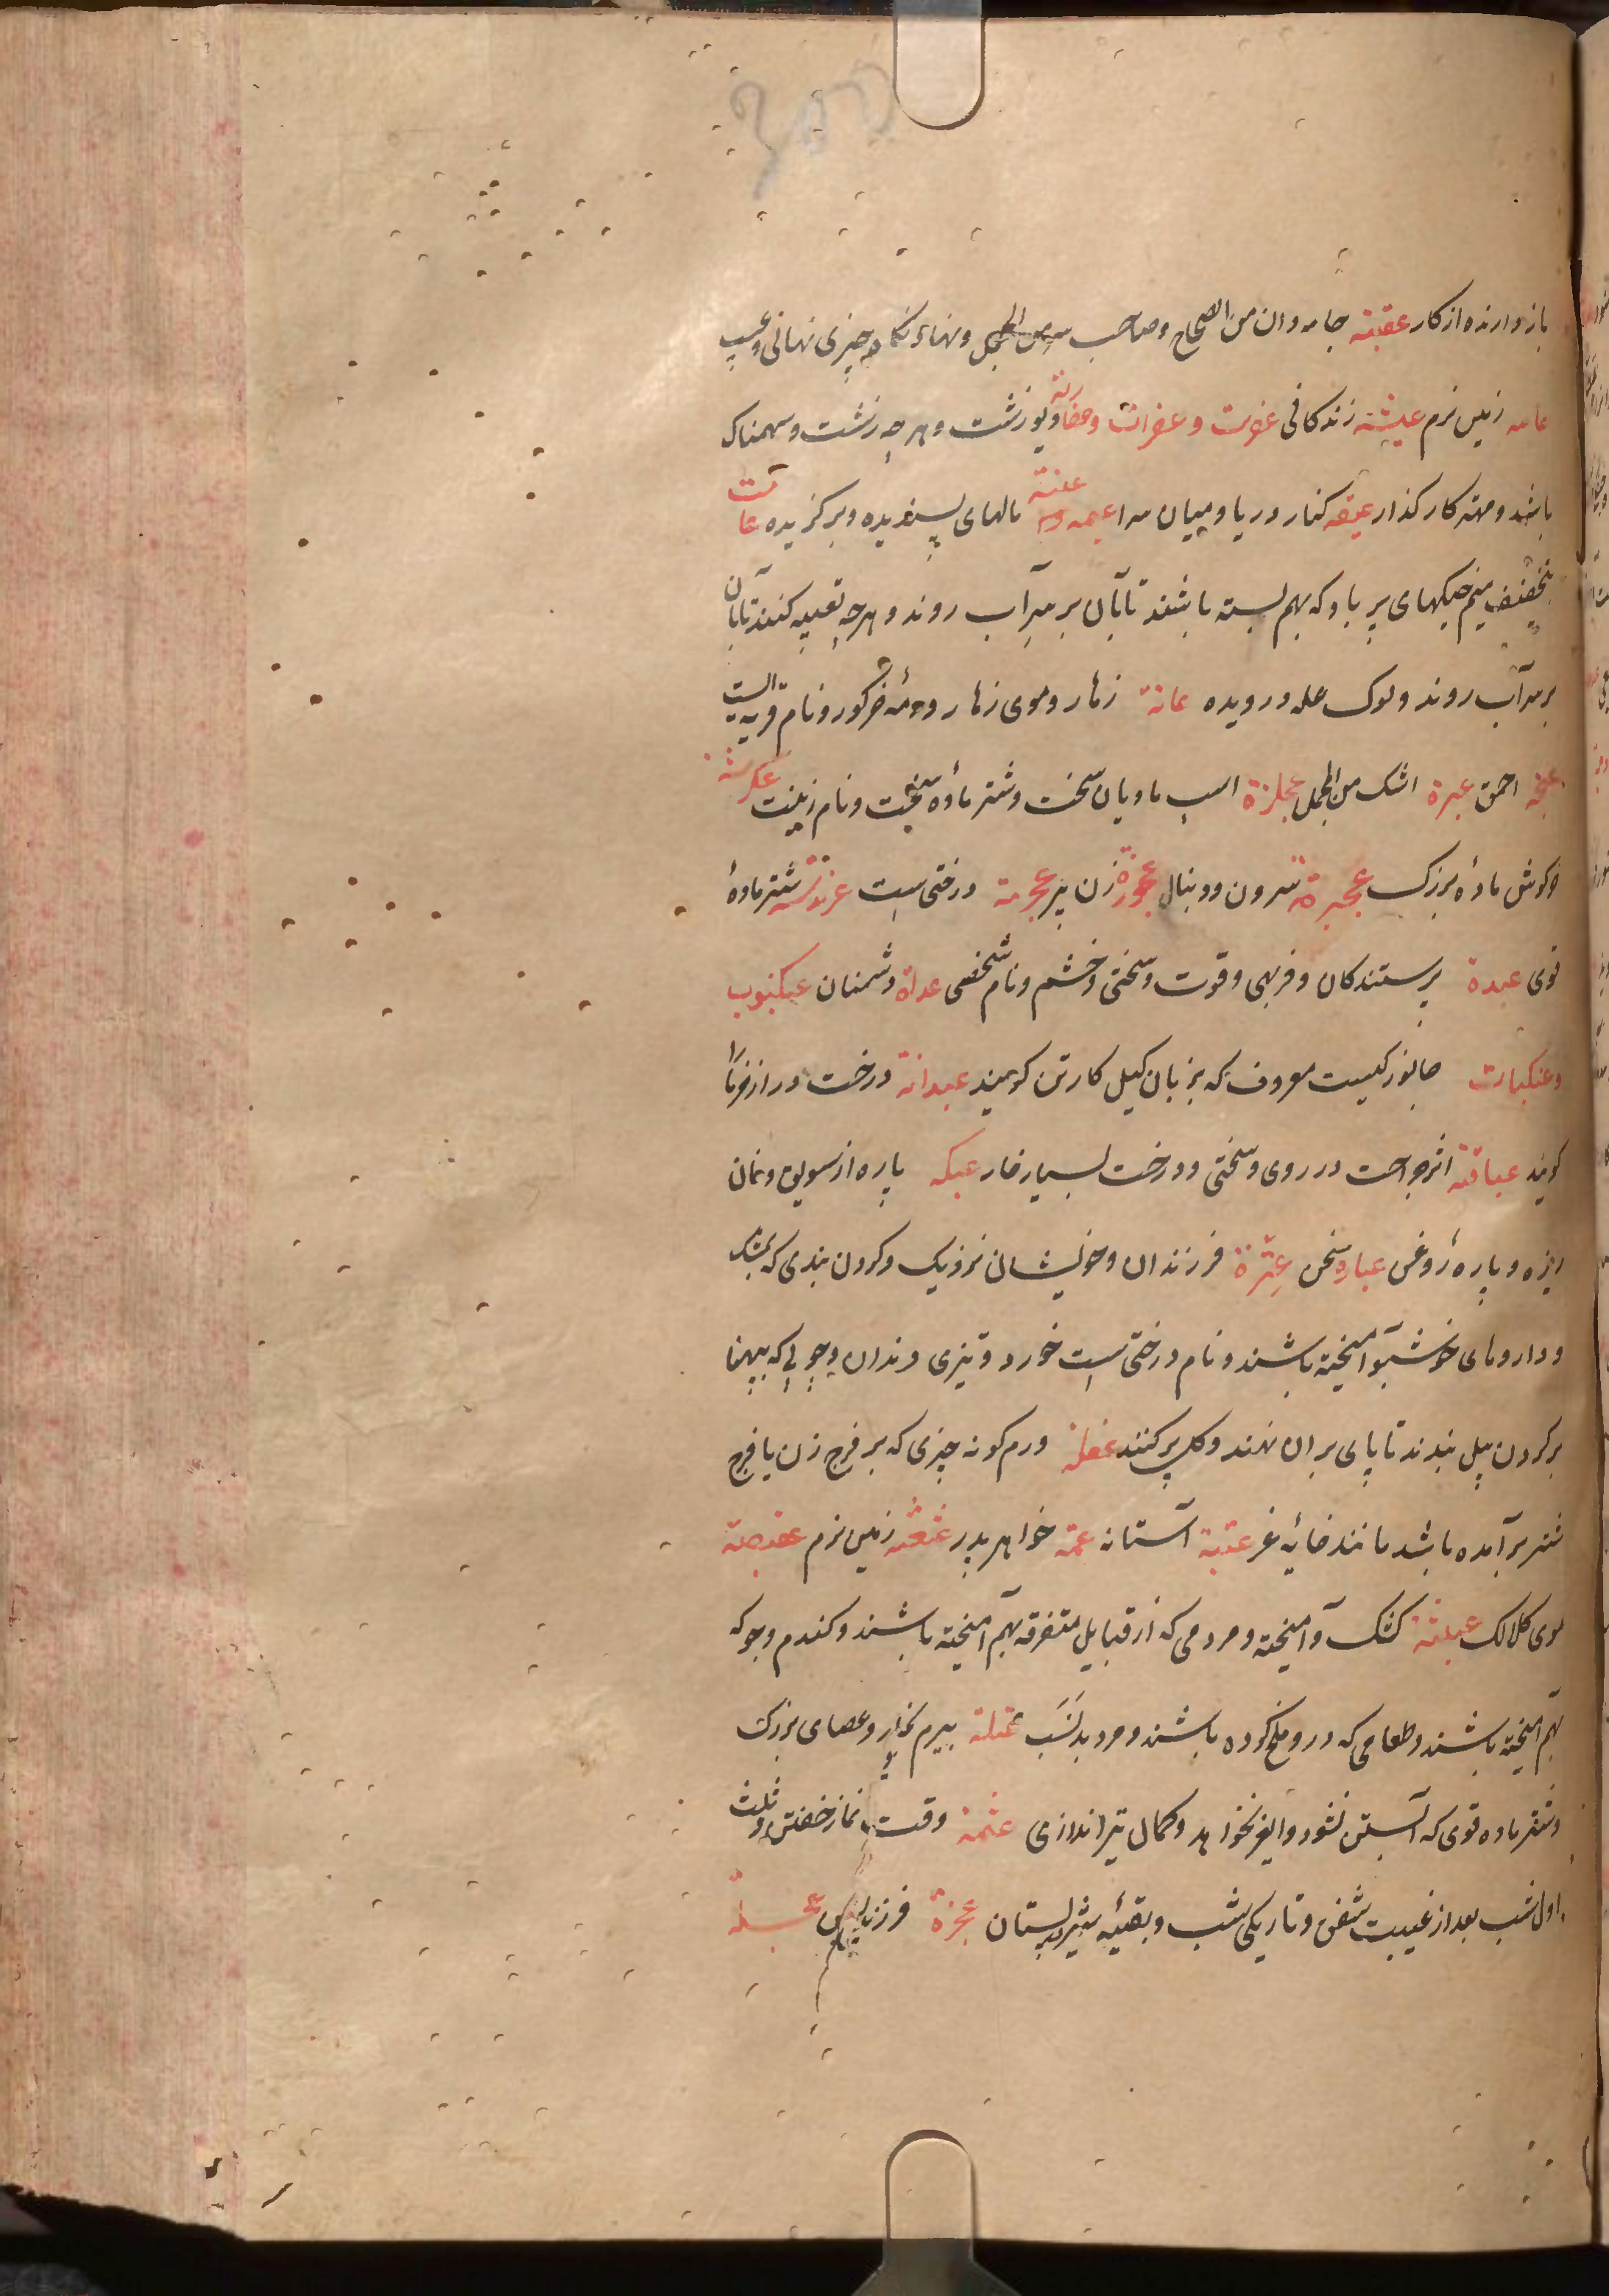 باز دارنده از کار عقبة جامه دان من الصحاح وصاحب سر من المجمل ونهاد نگاه چیزی نهانی وعیب
عامه زمین نرم عیشة زندکانی عفریت و عفرات وعفاریة دیو زشت وهرچه زشت وسهمناک
باشد ومهتر کار کذار عیقه کنار دریا ومیان سرا عیمه وعنیة مالهای پسندیده وبرکزیده عامت
بتخفیف میم خیکهای پر باد که بهم بسته باشند تا بآن بر سر آب روند وهرچه تعبیه کنند تا بان
بر سر آب روند ولوک عله درویده عانة زهار وموی زهار ورمهٔ خر کور ونام قریه الیست
عفجه احمق عبرة اشک من المجمل عجلزة اسپ مادیان سخت وشتر مادهٔ سخت ونام زنیست عکرشة
خرکوش مادهٔ بزرک عجیزة سرون ودنبال عجوزة زن پیر عجرمة درختی است عرندسة شتر مادهٔ
قوی عبدة پرستندکان وفربهی وقوت وسختی وخشم ونام شخصی عداة دشمنان عیکنبوب
وعنکبات جانورکیست معروف که بزبان کیل کارتن کویند عیدانة درخت دراز خرما را
کویند عباقیة اثر جراحت در روی وسختی ودرخت بسیار خار عبکه پاره از سویق ونان
ریزه وپارهٔ روغن عباره سخن عترة فرزندان وخویشان نزدیک وکردن بندی که بمشک
وداروهای خوشبو آمیخته باشند ونام درختی است خورد وتیزی دندان وچوبی که بپهنا
بر کردن بیل بندند تا پای بر ان نهند وکل پر کنند عفلة ورم کونه چیزی که بر فرج زن یا فرج
شتر برآمده باشد مانند خایهٔ غر عتبة آستانه عمة خواهر پدر عثعثه زمین نرم عقصة
موی کلالک عبیثة کشک آمیخته ومردمی که از قبایل متفرقه بهم آمیخته باشند وکندم وجو که
بهم آمیخته باشند وطعامی که در وملخ کرده باشند ومرد بد نسب عتلة بیرم نجار وعصای بزرک
وشتر ماده قوی که آبستن نشود وایغر نخواهد وکمان تیر اندازی عتمة وقت نماز خفتن وثلث
اول شب بعد از غیبت شفق وتاریکی شب وبقیهٔ شیر پستان عجزة فرزند پسین عجلة